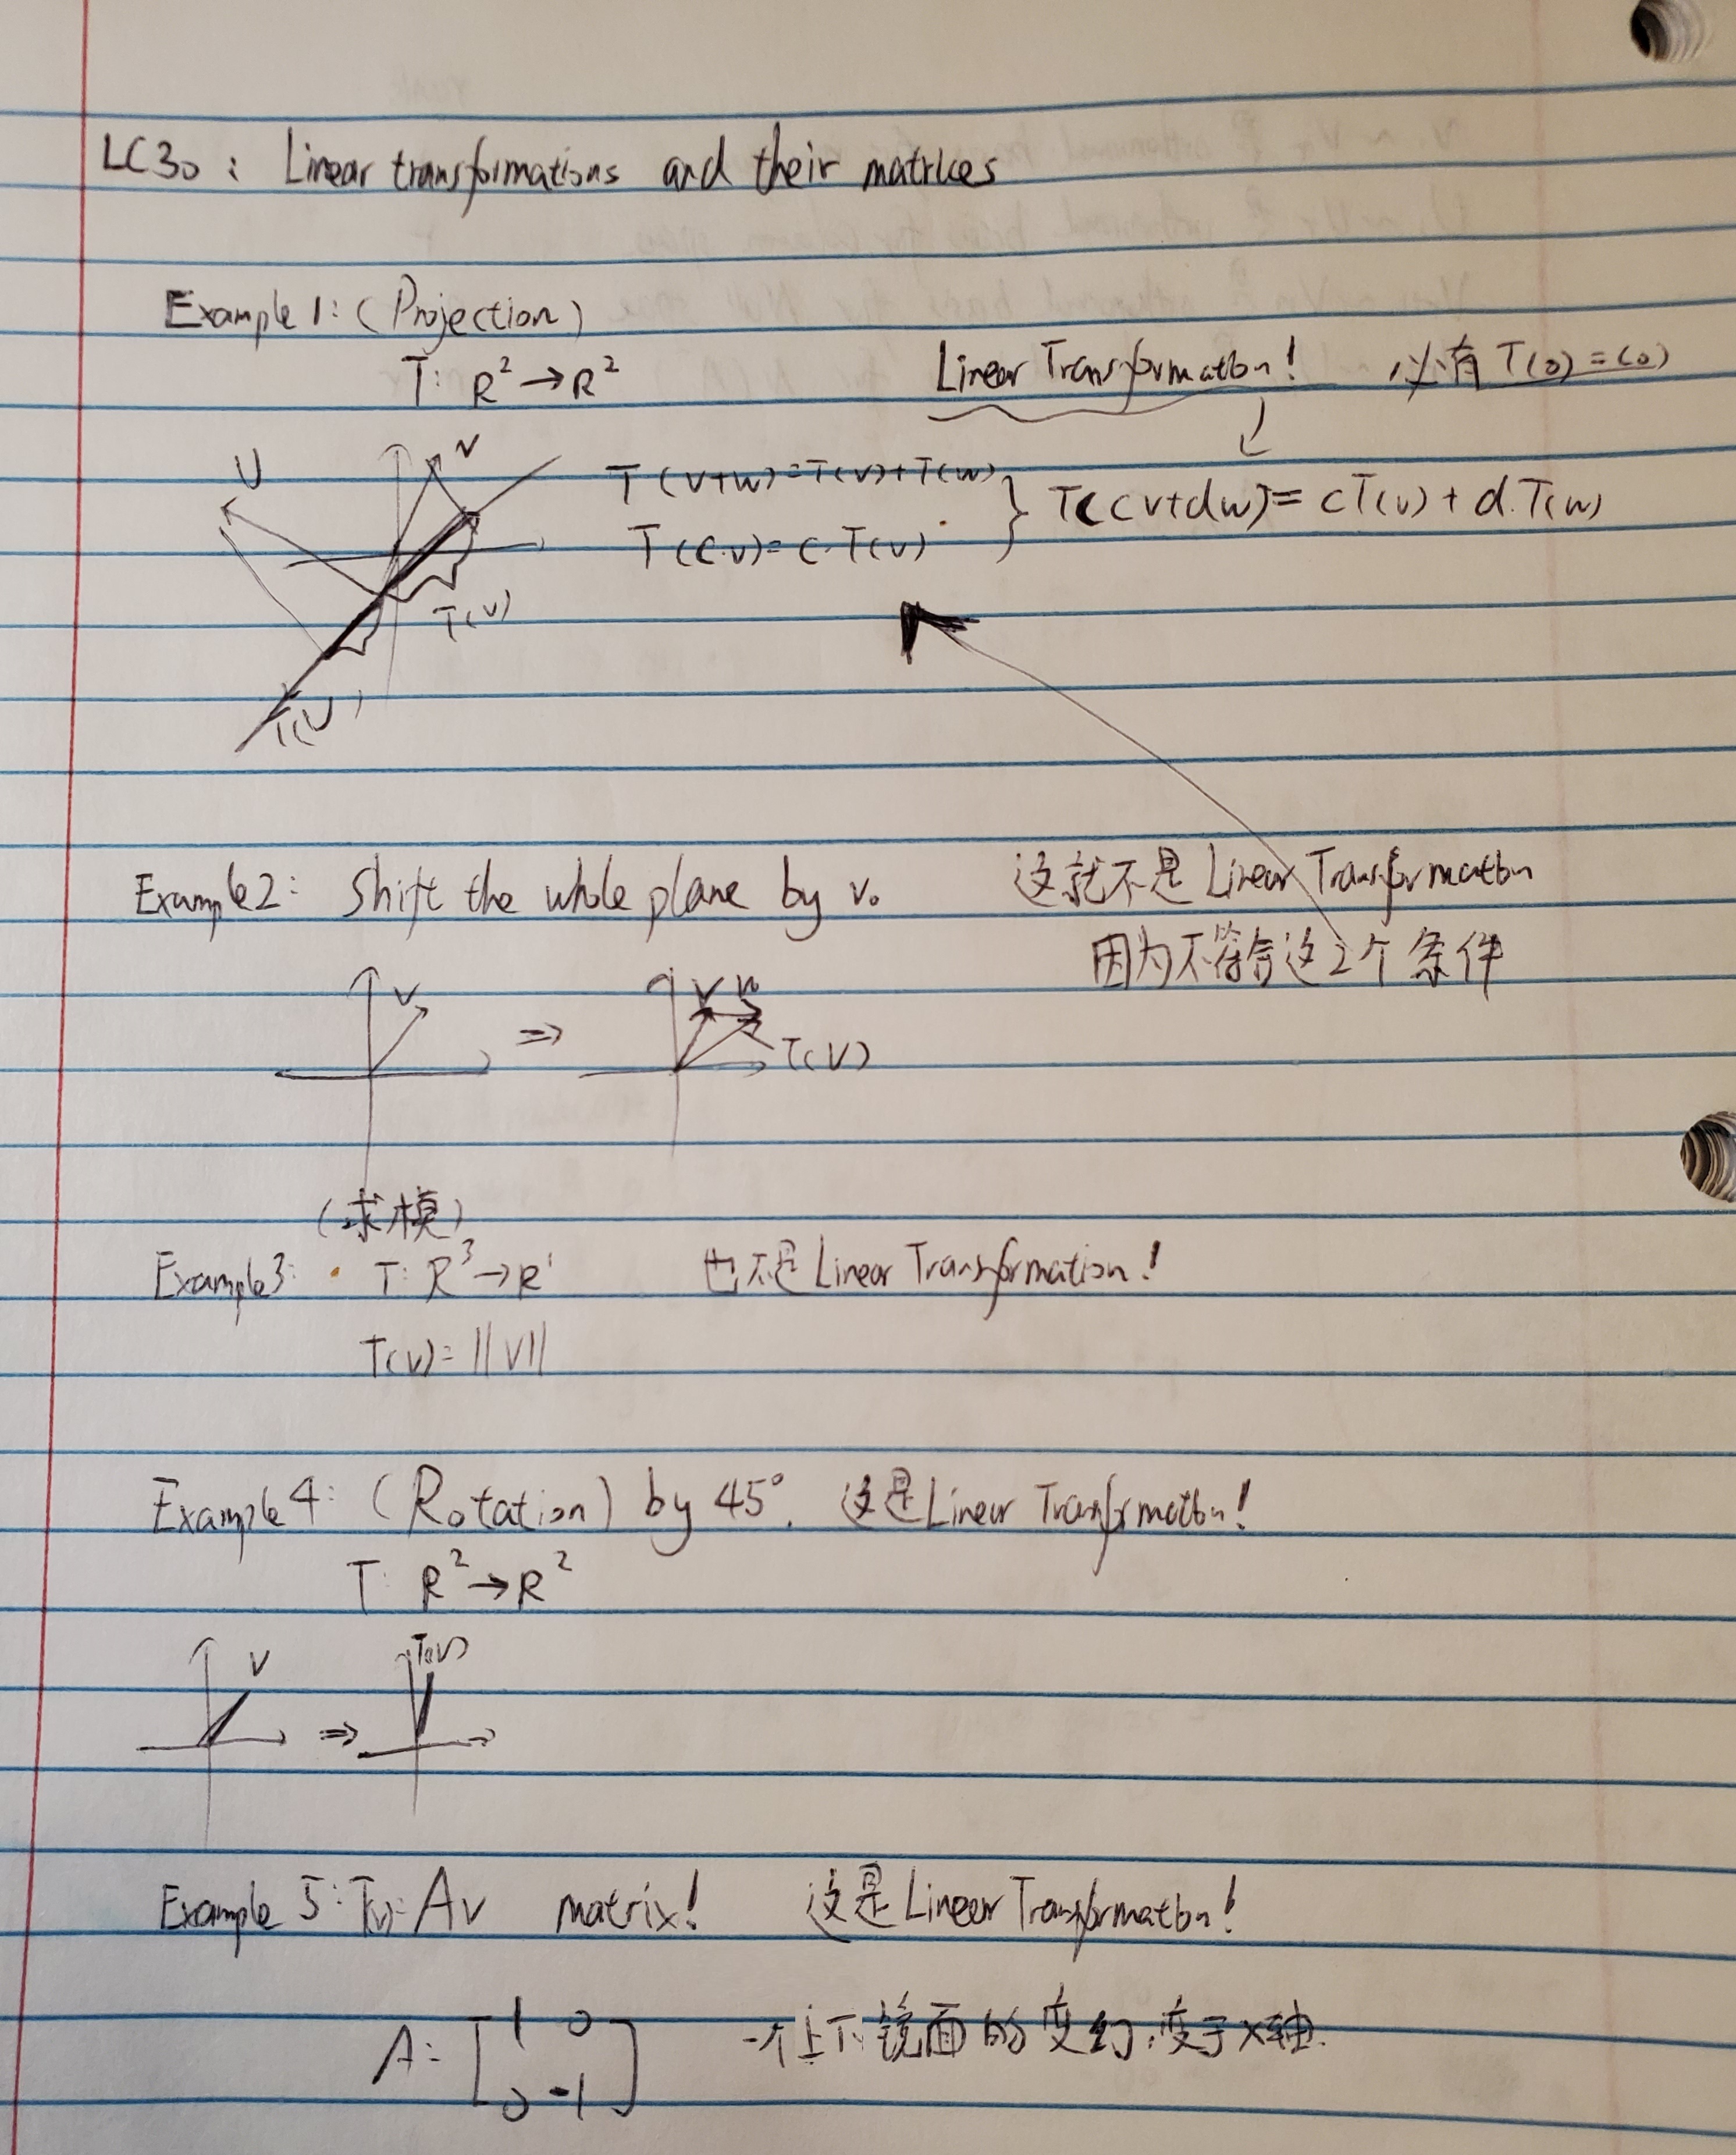 LC30: Linear transformations and their matrices
Example 1: (Projection)
T: R² → R²
Linear Transformation! 必有 T(0) = (0)
U v
T(v+w) = T(v)+T(w)
T(c·v) = c·T(v)
} T(cv+dw) = cT(v) + d.T(w)
T(v)
T(U)
Example 2: Shift the whole plane by v₀ 这就不是 Linear Transformation
因为不符合这2个条件
v ⇒ v v₀
T(v)
(求模)
Example 3: T: R³ → R¹ 也不是 Linear Transformation!
T(v) = ||v||
Example 4: (Rotation) by 45°. 这是 Linear Transformation!
T: R² → R²
v ⇒ T(v)
Example 5: T(v) = Av matrix! 这是 Linear Transformation!
A = [1 0
0 -1] 一个上下镜面的变幻,变于x轴.